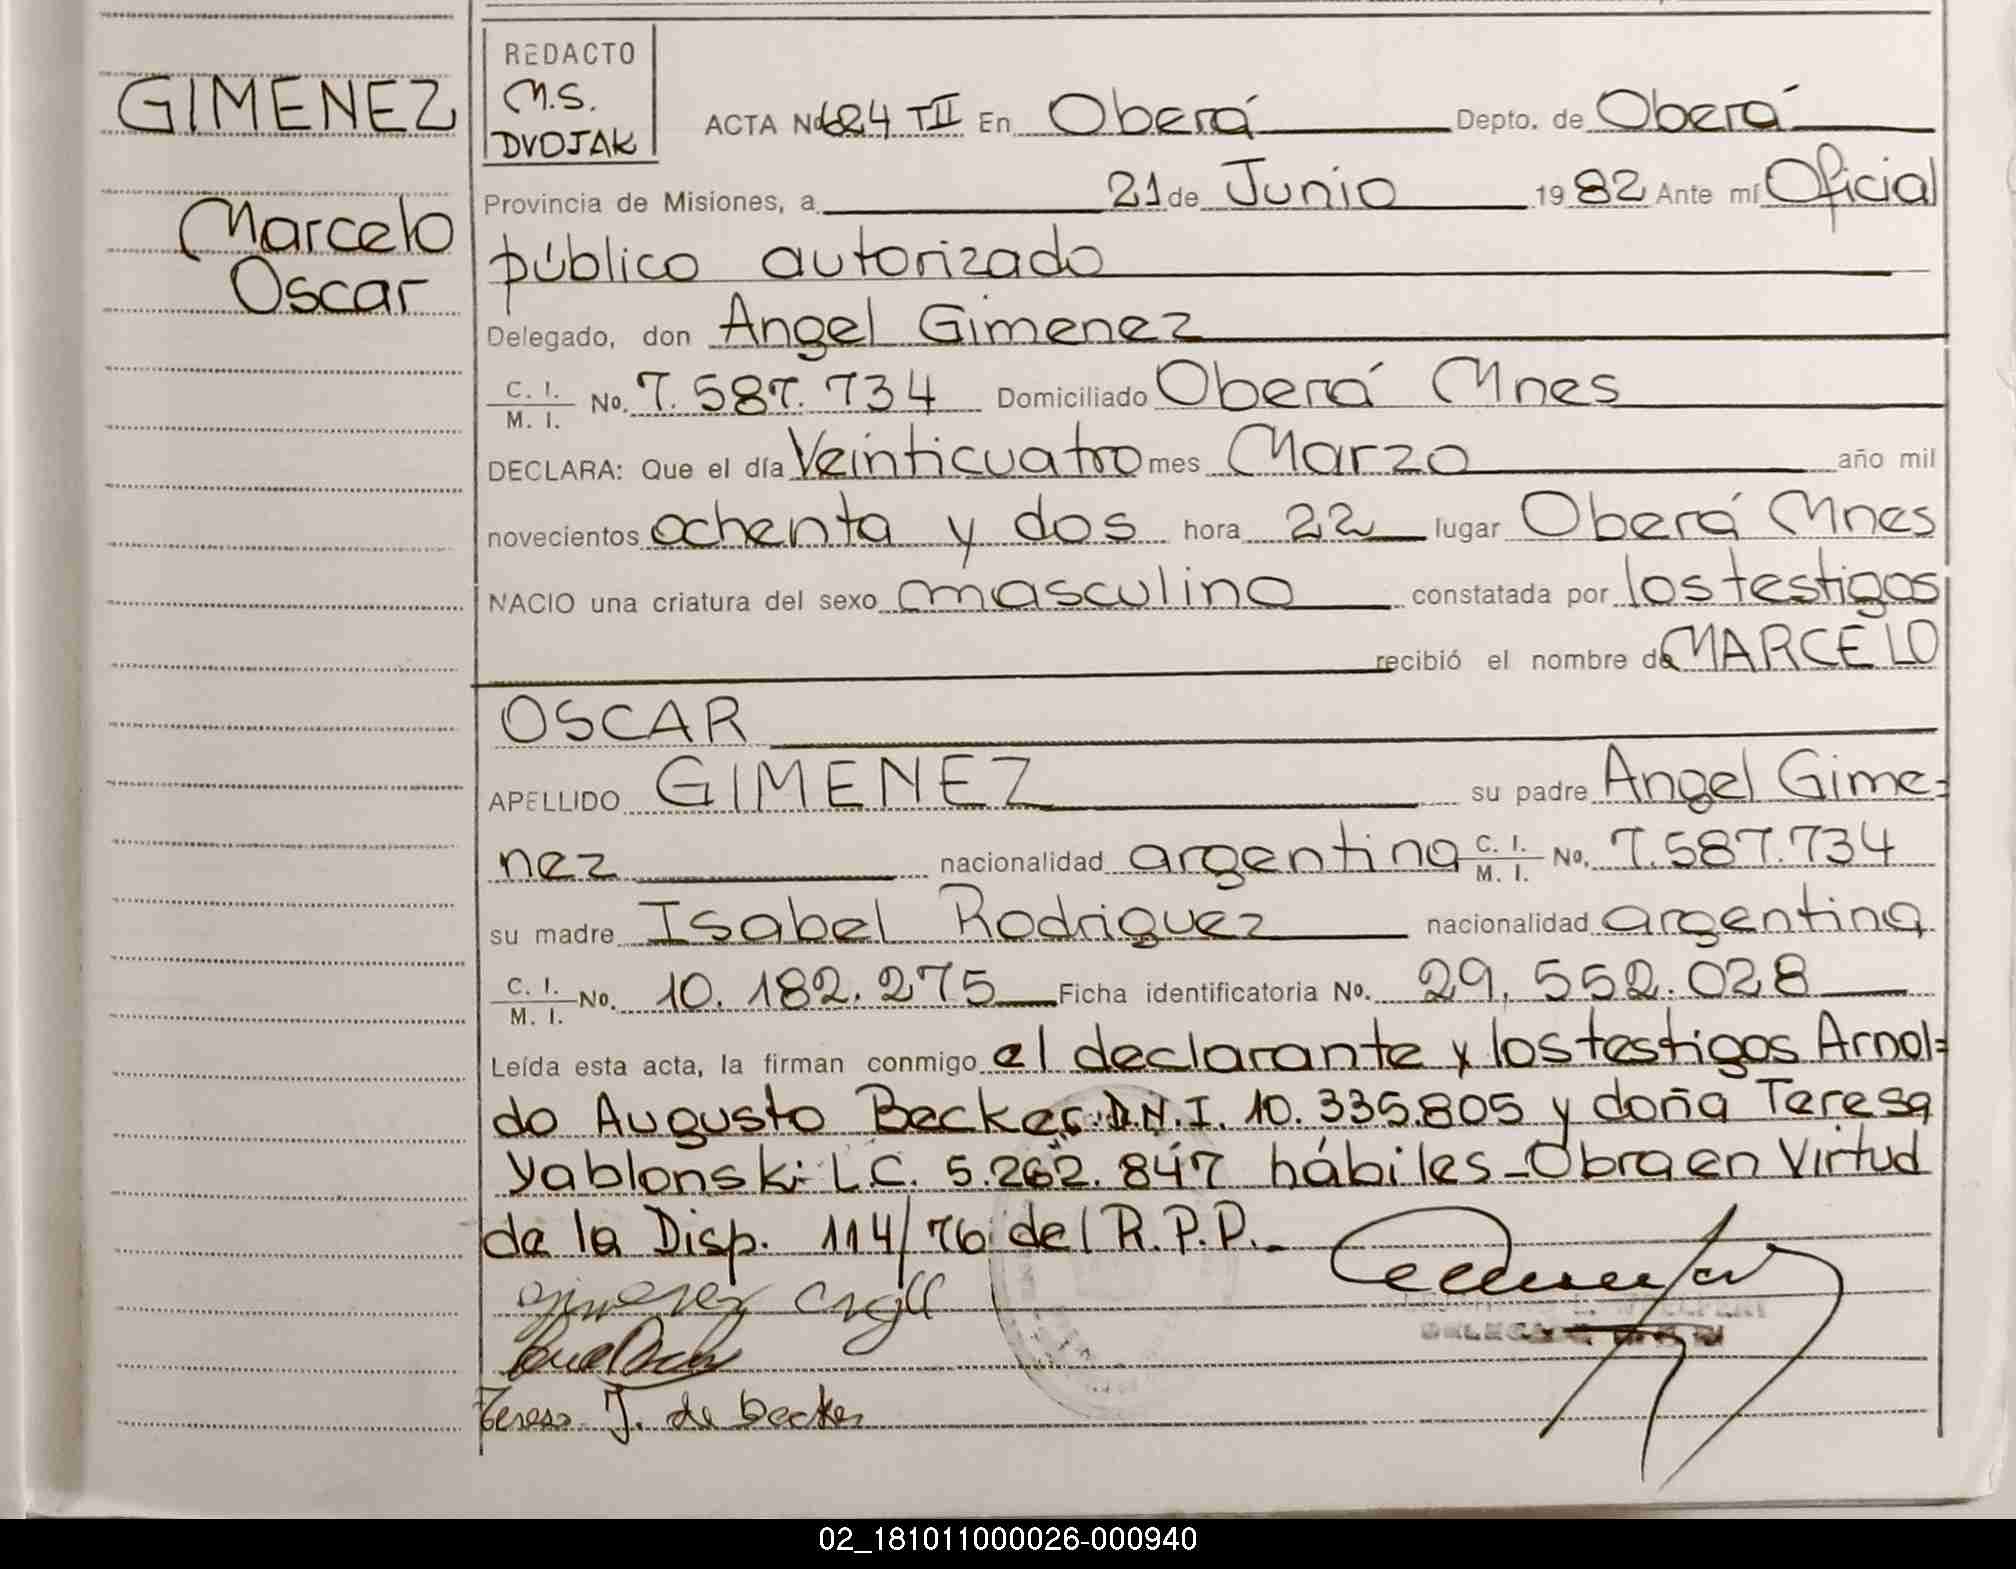 GIMENEZ
Marcelo
Oscar
REDACTO
M.S.
DVOJAK
ACTA No 624 TII En Oberá Depto. de Oberá
Provincia de Misiones, a 21 de Junio 1982 Ante mí Oficial
público autorizado
Delegado, don Angel Gimenez
C. I. / M. I. No. 7.587.734 Domiciliado Oberá Mnes
DECLARA: Que el día Veinticuatro mes Marzo año mil
novecientos ochenta y dos hora 22 lugar Oberá Mnes
NACIO una criatura del sexo masculino constatada por los testigos
recibió el nombre de MARCELO
OSCAR
APELLIDO GIMENEZ su padre Angel Gime=
nez nacionalidad argentina C. I. / M. I. No. 7.587.734
su madre Isabel Rodriguez nacionalidad argentina
C. I. / M. I. No. 10.182.275 Ficha identificatoria No. 29.552.028
Leída esta acta, la firman conmigo el declarante y los testigos Arnol=
do Augusto Becker D.N.I. 10.335.805 y doña Teresa
Yablonski L.C. 5.262.847 hábiles - Obra en Virtud
de la Disp. 114/76 del R.P.P.-
Gimenez Angel
Teresa J. de Becker
02_181011000026-000940